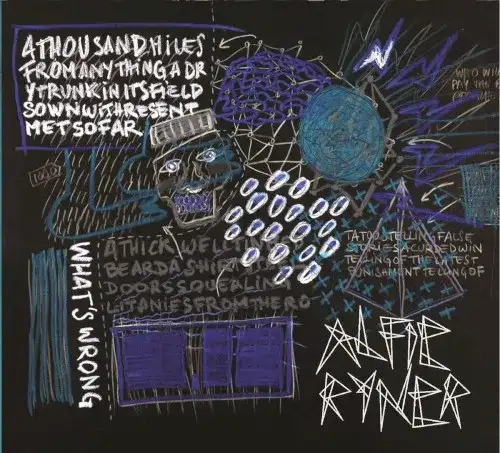 4THOUSANDMILES
FROMANYTHINGADR
YTRUNKINITSFIELD
SOWNWITHRESENT
METSOFAR
WHO WILL
PAY THE
WHAT'S WRONG
ATHICKWELLTIN
BEARDASHI
DOORSSQUEALING
LITANIESFROMTHERO
TATOOSTELLINGFALSE
STORIESACURDEDWIN
TELLINGOFTHELATEST
PUNISHMENTTELLINGOF
ALFIE
RYNER